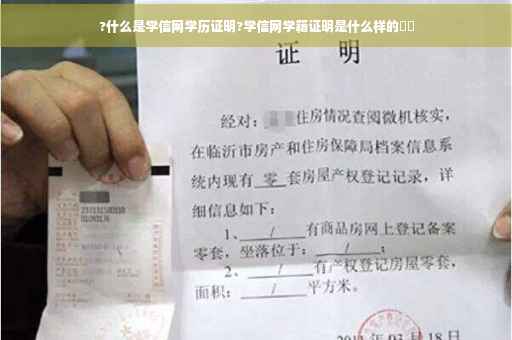 ?什么是学信网学历证明?学信网学籍证明是什么样的
证 明
经对: 住房情况查阅微机核实,
在临沂市房产和住房保障局档案信息系
统内现有 零 套房屋产权登记记录,详
细信息如下:
1、 / 有商品房网上登记备案
零套,坐落位于: / ;
2、 / 有产权登记房屋零套,
面积: / 平方米。
03月18日